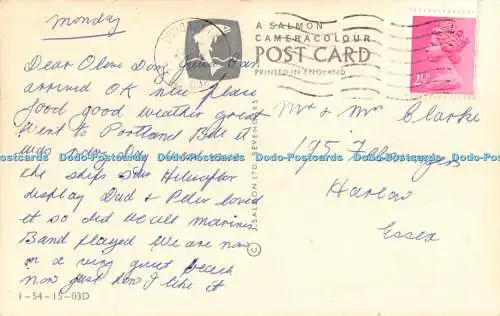 Monday
Dear Olive Doug
arrived OK nice place
food good weather great
went to Portland Bill it
was navy Day went on
the ships saw Helicopter
display Dad & Peter loved
it so did we all marines
Band played we are now
on a very quiet beach
now just how I like it
1-54-15-03D
A SALMON
CAMERACOLOUR
POST CARD
PRINTED IN ENGLAND
© J. SALMON LTD. SEVENOAKS
2½P
Mr & Mrs Clarke
195
Harlow
Essex
Dodo-Postcards Dodo-Postcards Dodo-Postcards Dodo-Postcards Dodo-Postcards Dodo-Postcards